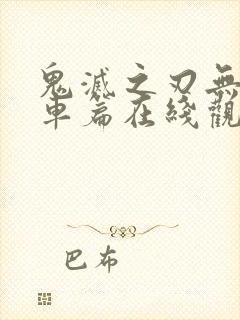 鬼滅之刃無
車篇在綫觀
巴布